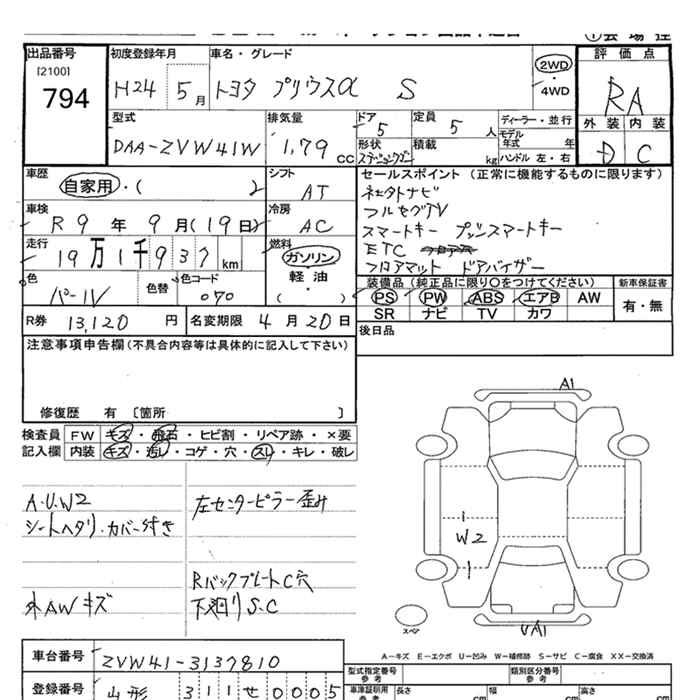 出品番号
[2100]
794
初度登録年月
H24 5月
車名・グレード
トヨタ プリウスα S
2WD
・
4WD
評価点
RA
外装 内装
D C
型式
DAA-ZVW41W
排気量
1.79 CC
ドア
5
形状
ステーションワゴン
定員
5 人
積載
kg
ディーラー・並行
モデル
年式 年
ハンドル 左・右
車歴
自家用・( )
シフト
AT
車検
R9年9月(19日)
冷房
AC
走行
19万1千937km
燃料
ガソリン
軽・油
( )
色
パール
色替
色コード
070
R券 13,120 円
名変期限 4月20日
セールスポイント (正常に機能するものに限ります)
ネッタトナビ
フルセグTV
スマートキー プッシュスマートキー
ETC
フロアマット ドアバイザー
装備品 (純正品に限り○をつけてください)
新車保証書
PS PW ABS エアB AW
SR ナビ TV カワ
有・無
後日品
注意事項申告欄(不具合内容等は具体的に記入して下さい)
修復歴 有 〔箇所 〕
検査員 FW キズ・飛石・ヒビ割・リペア跡・×要
記入欄 内装 キズ・汚レ・コゲ・穴・スレ・キレ・破レ
A・U・W2
シートヘタリ・カバー付き
外AWキズ
左センターピラー歪み
RバックプレートC穴
下廻りS.C
A1
W2
UA1
スペア
A－キズ E－エクボ U－凹み W－補修跡 S－サビ C－腐食 XX－交換済
車台番号 ZVW41-3137810
登録番号 山形 311 せ 0005
型式指定番号
参考
類別区分番号
参考
車検証明用
参考
長さ cm
幅 cm
高さ cm